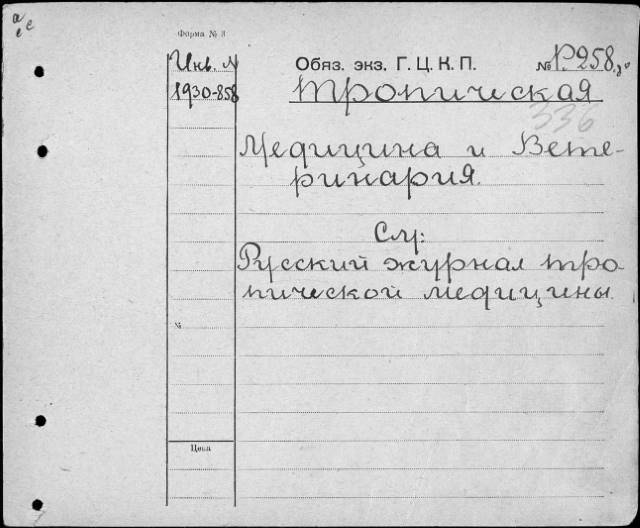 Форма № 3
Инв. №
1930-858
Обяз. экз. Г. Ц. К. П.
№ Р. 258
Тропическая
336
Медицина и Вете-
ринария.
См:
Русский журнал тро-
пической медицины.
№
Цена